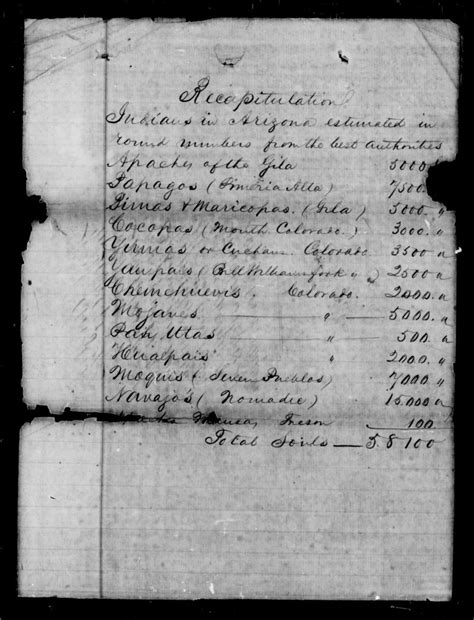 Recapitulation
Indians in Arizona estimated in
round numbers from the best authorities
Apaches of the Gila 5000
Papagos (Pimeria Alta) 7500
Pimas & Maricopas. (Gila) 5000 "
Cocopas (Mouth Colorado.) 3000. "
Yumas or Cuchans. Colorado 3500 "
Yampais (Bill Williams fork ") 2500 "
Chemehuevis. Colorado. 2000. "
Mojaves — " — 5000. "
Pah Utas — " — 500. "
Hualpais " 2000. "
Moquis (Seven Pueblos) 7000 "
Navajos (Nomadic) 15.000 "
100
Total Souls — 58100